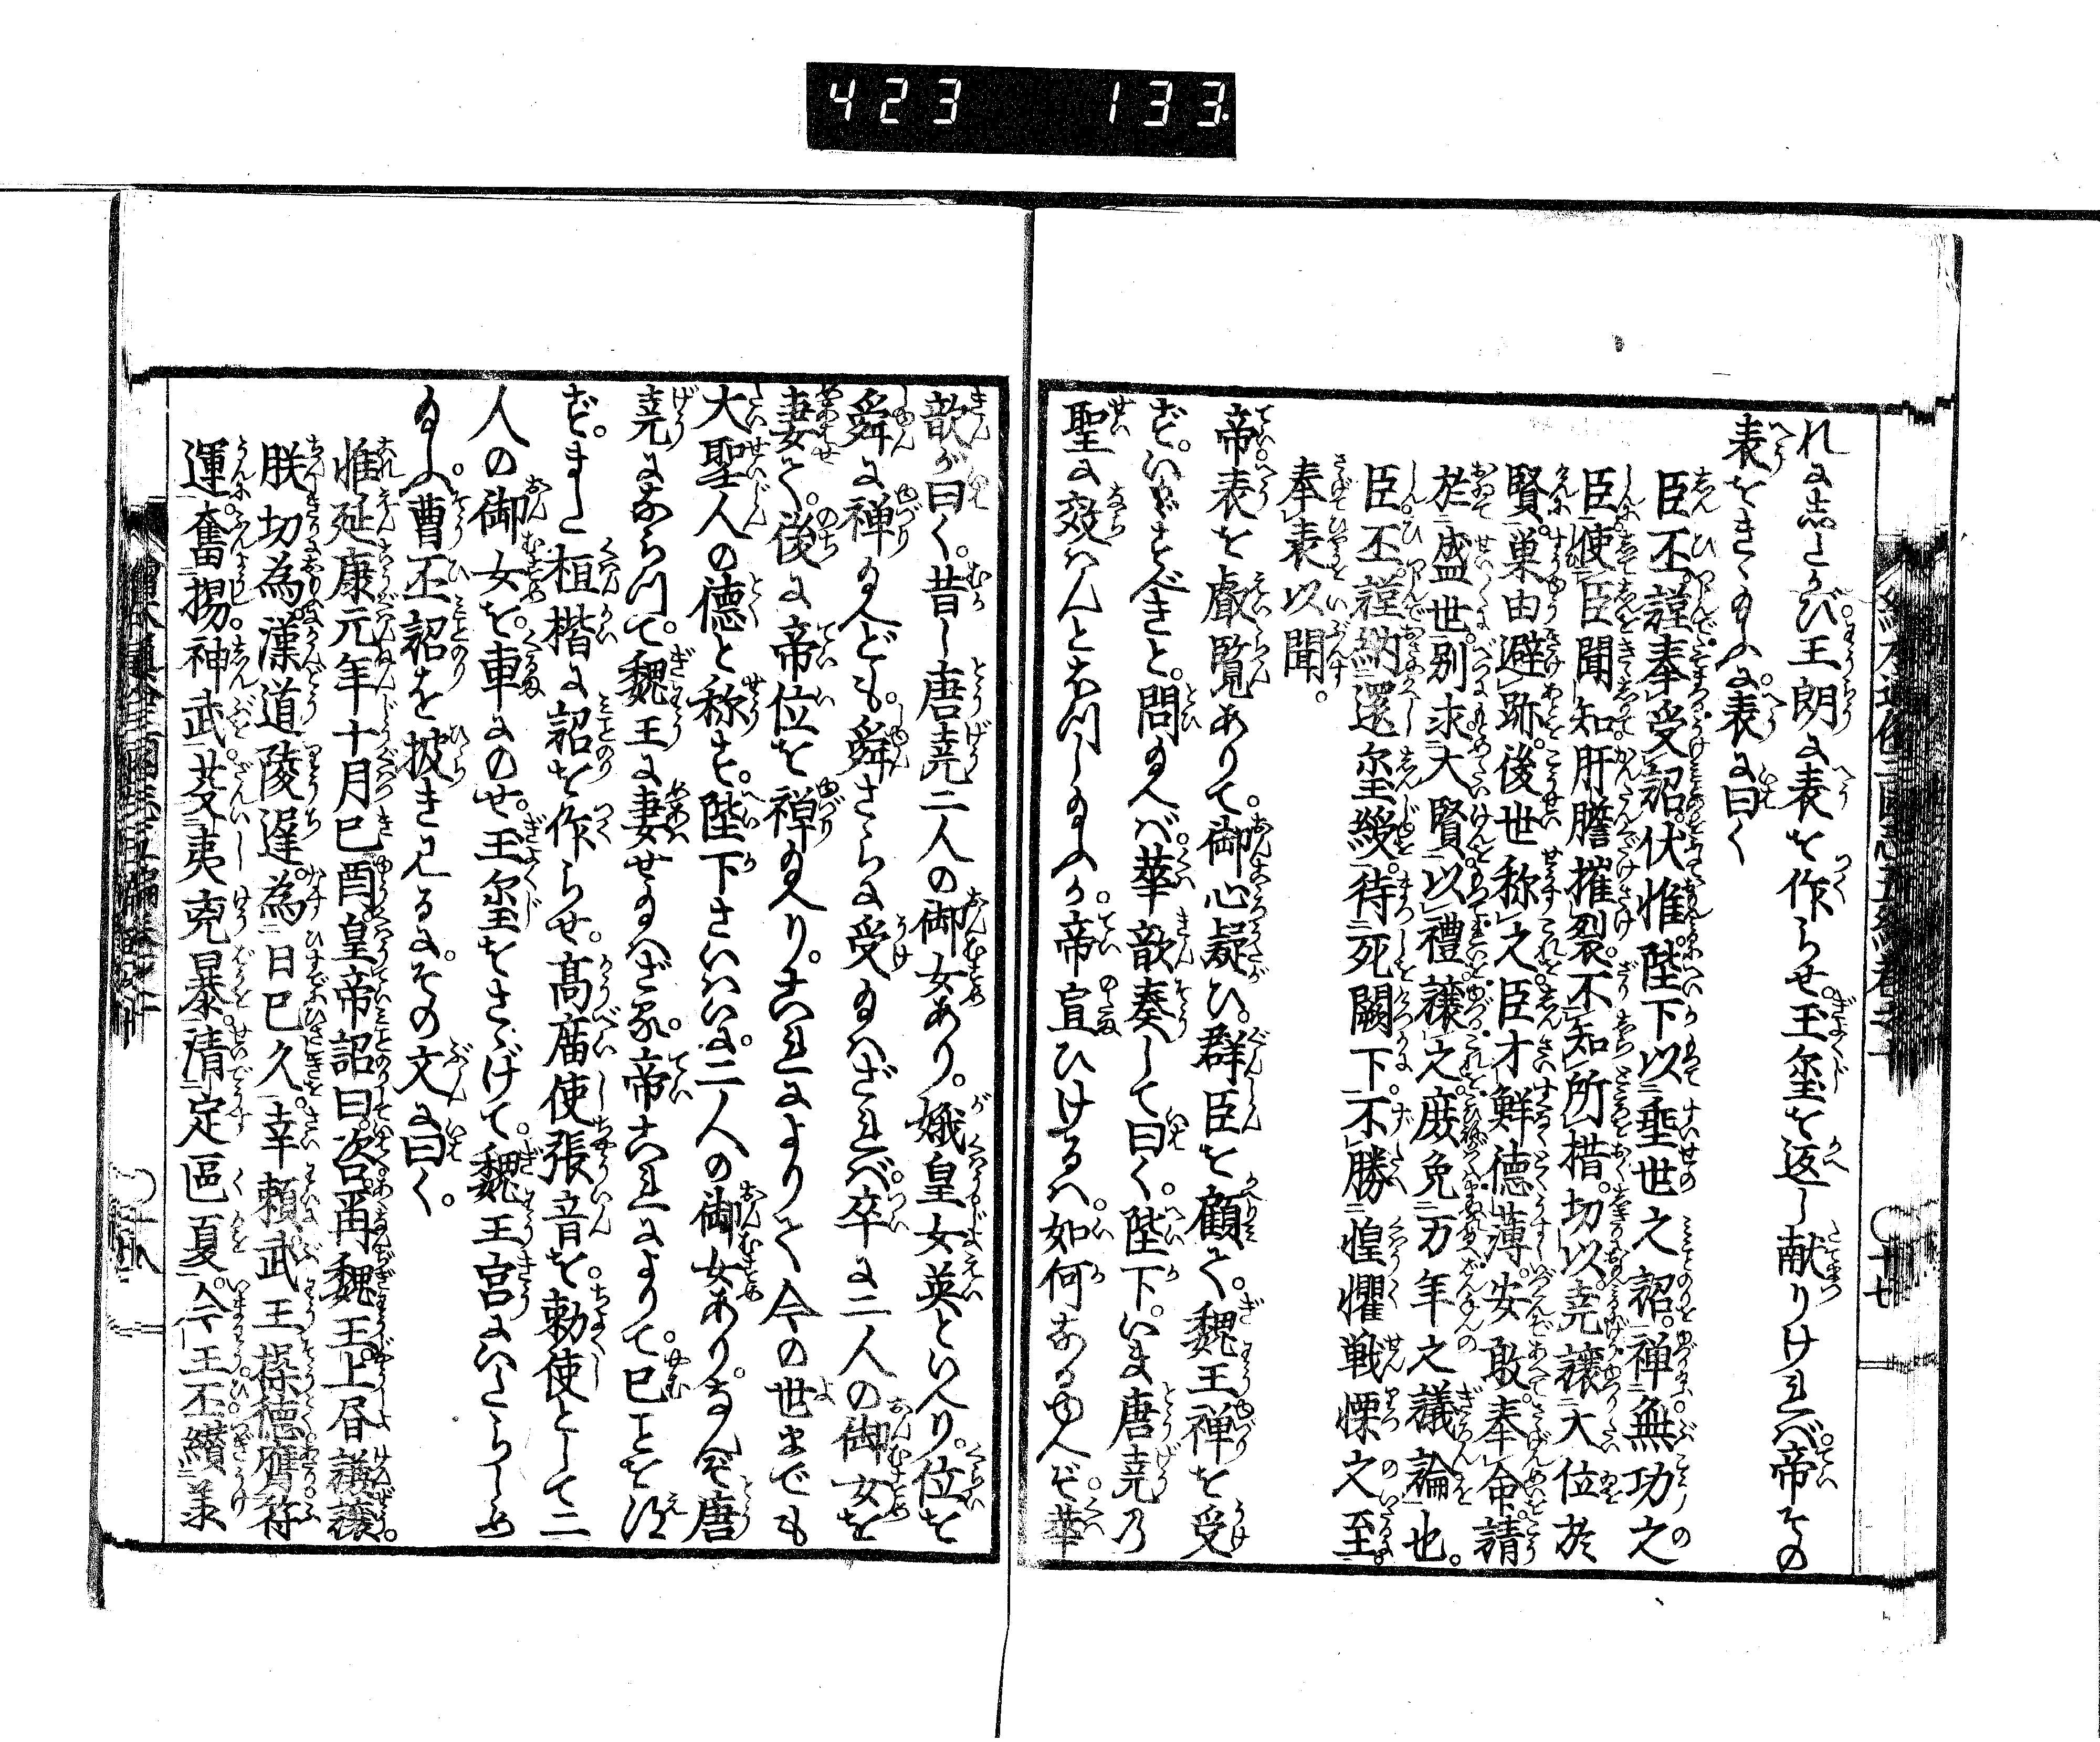 423 133
れに志たがひ王朗に表を作らせ。玉璽を返し献りけれバ。帝その
表をきゝ給ふに。表に曰く
臣丕謹奉受詔。伏惟陛下以垂世之詔。禅無功之
臣。使臣聞知肝膽摧裂。不知所措。切以。堯譲大位於
賢。巣由避跡。後世称之。臣才鮮德薄。安敢奉命。請
於盛世。別求大賢。以禮譲之。庶免万年之議論也。
臣丕。謹納還璽綬。待死闕下。不勝惶懼戦慄之至。
奉表以聞。
帝表を叡覧ありて。御心疑ひ。群臣を顧て。魏王禅を受
ず。いかゞすべきと。問給へバ。華歆奏して曰く。陛下。いま唐堯乃
聖に效ハんとおぼし給ふか。帝宣ひけるハ。如何なるゆへぞ。華
歆が曰く。昔し唐堯二人の御女あり。娥皇女英といへり。位を
舜に禅り給へども。舜さらに受給ハざれバ。卒に二人の御女を
妻て。後に帝位を禅り給へり。これによりて今の世までも
大聖人の德と称す。陛下さいはいに。二人の御女あり。なんぞ唐
堯にならつて。魏王に妻せ給ハざる。帝これによりて。已ことを得
ず。また桓楷に詔を作らせ。高廟使張音を。勅使として二
人の御女を。車にのせ。玉璽をさゝげて。魏王宮にいたらしめ
給ふ。曹丕詔を披き見るに。その文に曰く。
惟延康元年十月己酉。皇帝詔曰。咨爾魏王。上書謙譲。
朕切為。漢道陵遅。為日已久。幸頼武王操德膺符
運。奮揚神武。芟夷兇暴。清定區夏。今王丕纉承